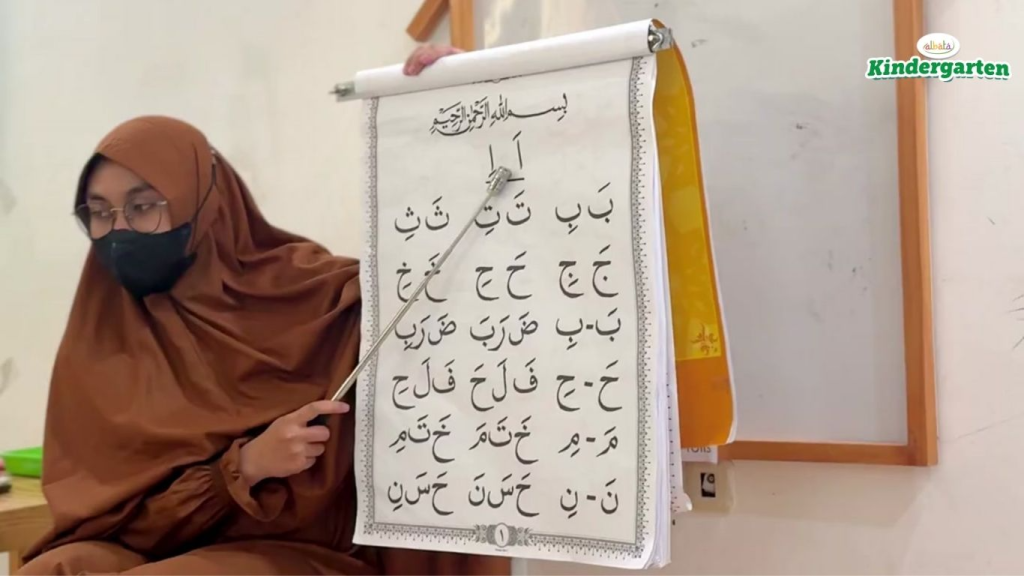 albata
Kindergarten
بِسْمِ اللهِ الرَّحْمٰنِ الرَّحِيْمِ
اَ اِ
بَ بِ تَ تِ ثَ ثِ
جَ جِ حَ حِ خَ خِ
بَ - بِ ضَرَبَ ضَرَبِ
حَ - حِ فَلَحَ فَلَحِ
مَ - مِ خَتَمَ خَتَمِ
نَ - نِ حَسَنَ حَسَنِ
١